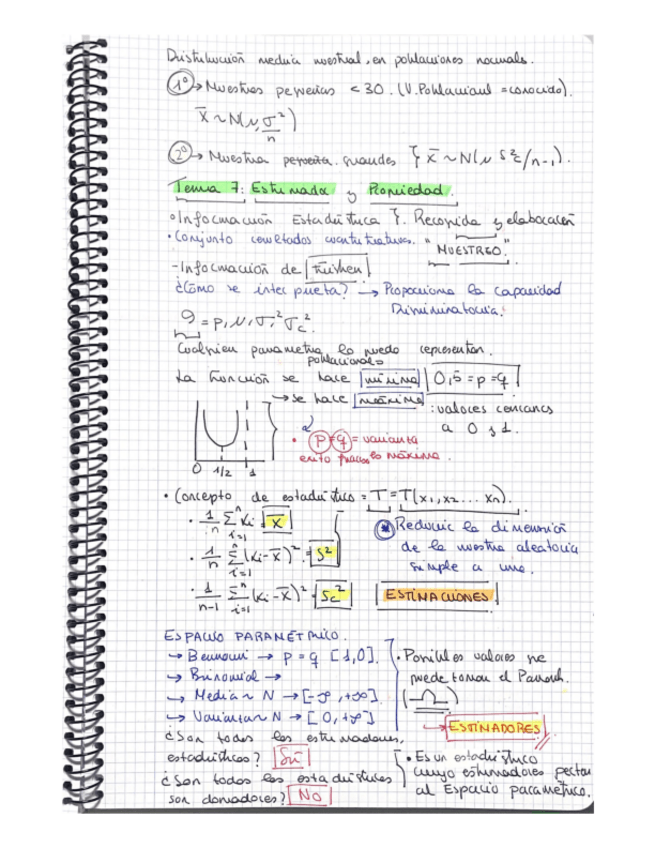 Distribución media muestral, en poblaciones normals.
1º → Muestras pequeñas < 30. (V. Poblacional = conocido).
X̄ ~ N(μ, σ²/n)
2º → Muestra pequeña. grandes } X̄ ~ N(μ S²c/n-1).
Tema 7: Estimador y Propiedad.
• Información Estadística }. Recogida y elaboración
• Conjunto resultados cuantitativos. "MUESTREO."
- Información de Fisher
¿Cómo se interpreta? → Proporciona la capacidad
Discriminatoria.
θ = p, μ, σ², σc².
Cualquier parametro lo puedo representar.
poblacionales
La función se hace mínima 0,5 = p = q
→ se hace máxima : valores cercanos
a 0 y 1.
• p = q = varianza
exito fracaso máxima.
0 1/2 1
• Concepto de estadístico = T = T(x1, x2 ... xn).
• 1/n Σ i=1 n xi = X̄
• 1/n Σ i=1 n (xi - X̄)² = S²
• 1/n-1 Σ i=1 n (xi - X̄)² = Sc²
* Reducir la dimensión
de la muestra aleatoria
simple a una.
ESTIMACIONES
ESPACIO PARAMÉTRICO.
→ Bernoui → p = q [1,0].
→ Binomial →
→ Media ~ N → [-∞, +∞].
→ Varianza ~ N → [0, +∞]
• Posibles valores que
puede tomar el Parámt.
→ ESTIMADORES
¿Son todos los estimadores,
estadísticos? Sí
¿Son todos los estadísticos
son domadores? No
• Es un estadístico
cuyo estimadores
al Espacio parametrico.